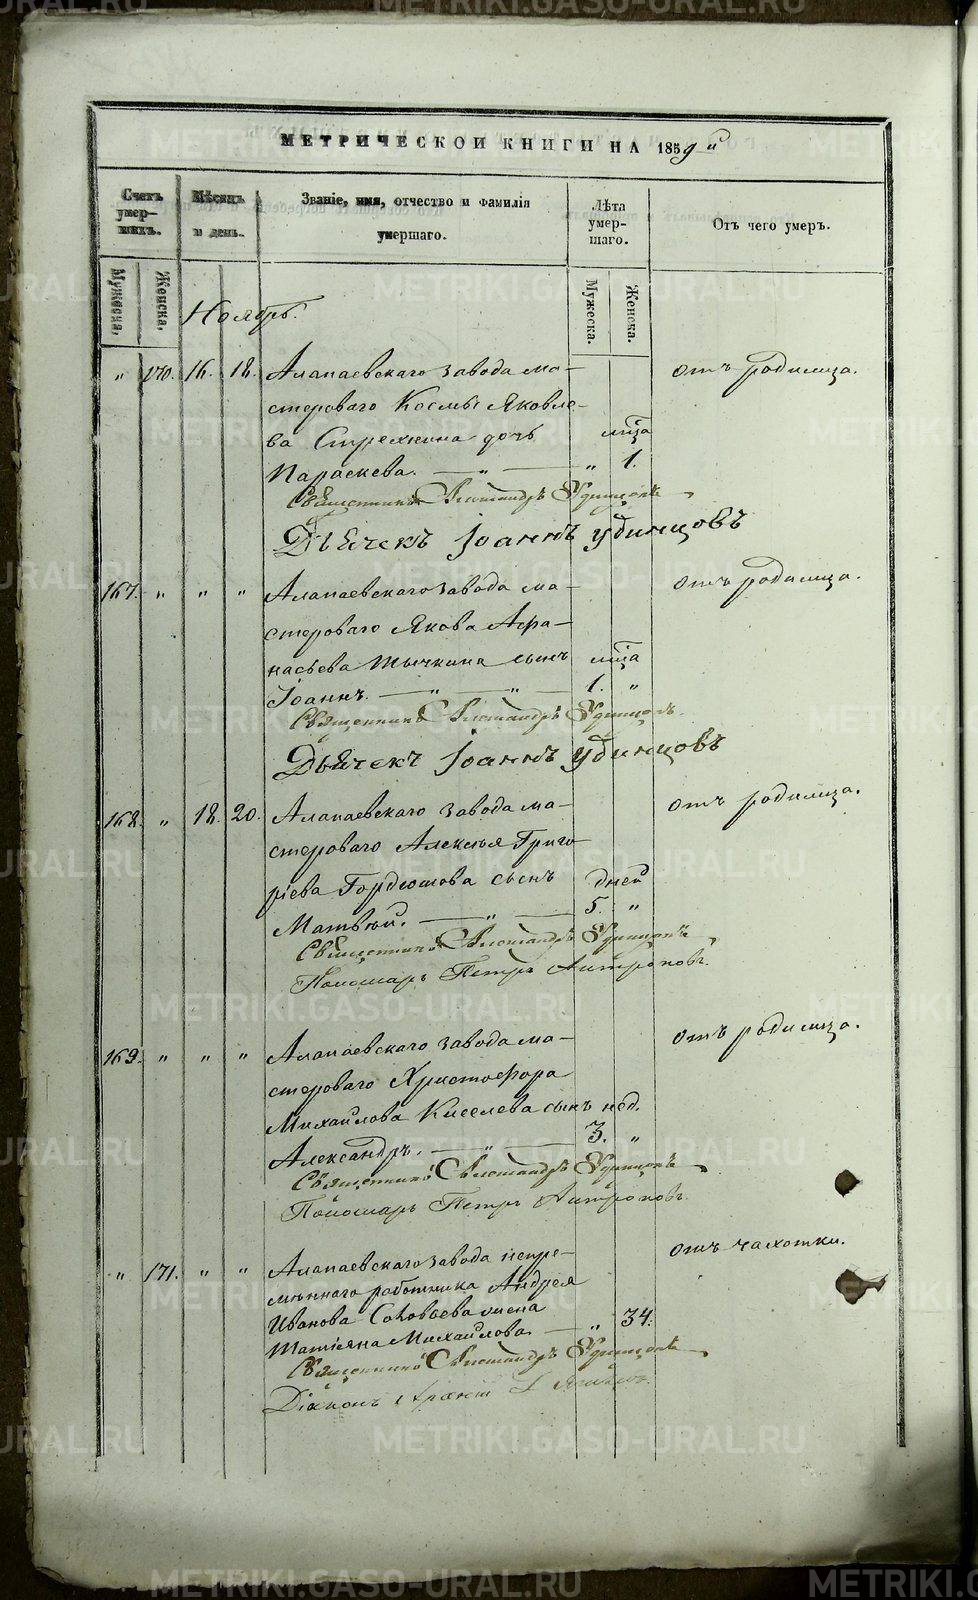 МЕТРИЧЕСКОЙ КНИГИ НА 1859 й
Счетъ умер-шихъ.
Мѣсяцъ и день.
Званіе, имя, отчество и фамилія умершаго.
Лѣта умер-шаго.
Отъ чего умеръ.
Мужеска. Женска.
Мужеска. Женска.
Ноябрь.
„ 170. 16. 18. Алапаевскаго завода ма- отъ родимца.
стероваго Космы Яковле-
ва Стрехнина дочь мца
Параскева. — „ — „ 1.
Священникъ Александръ Удинцовъ
Дьячекъ Іоаннъ Удинцовъ
167. „ „ „ Алапаевскаго завода ма- отъ родимца.
стероваго Якова Афа-
насьева Тычкина сынъ мца
Іоаннъ. — „ — „ — 1. „
Священникъ Александръ Удинцовъ.
Дьячекъ Іоаннъ Удинцовъ
168. „ 18. 20. Алапаевскаго завода ма- отъ родимца.
стероваго Алексѣя Григо
ріева Гордюшова сынъ дней
Матвѣй. — „ — 5. „
Священникъ Александръ Удинцовъ
Пономарь Петръ Антроповъ.
169. „ „ „ Алапаевскаго завода ма- отъ родимца.
стероваго Христофора
Михайлова Киселева сынъ нед.
Александръ. — „ — 3. „
Священникъ Александръ Удинцовъ
Пономарь Петръ Антроповъ.
„ 171. „ „ Алапаевскаго завода непре- отъ чахотки.
мѣннаго работника Андрея
Иванова Соловьева жена
Татіяна Михайлова. — „ 34.
Священникъ Александръ Удинцовъ
Діаконъ
METRIKI.GASO-URAL.RU